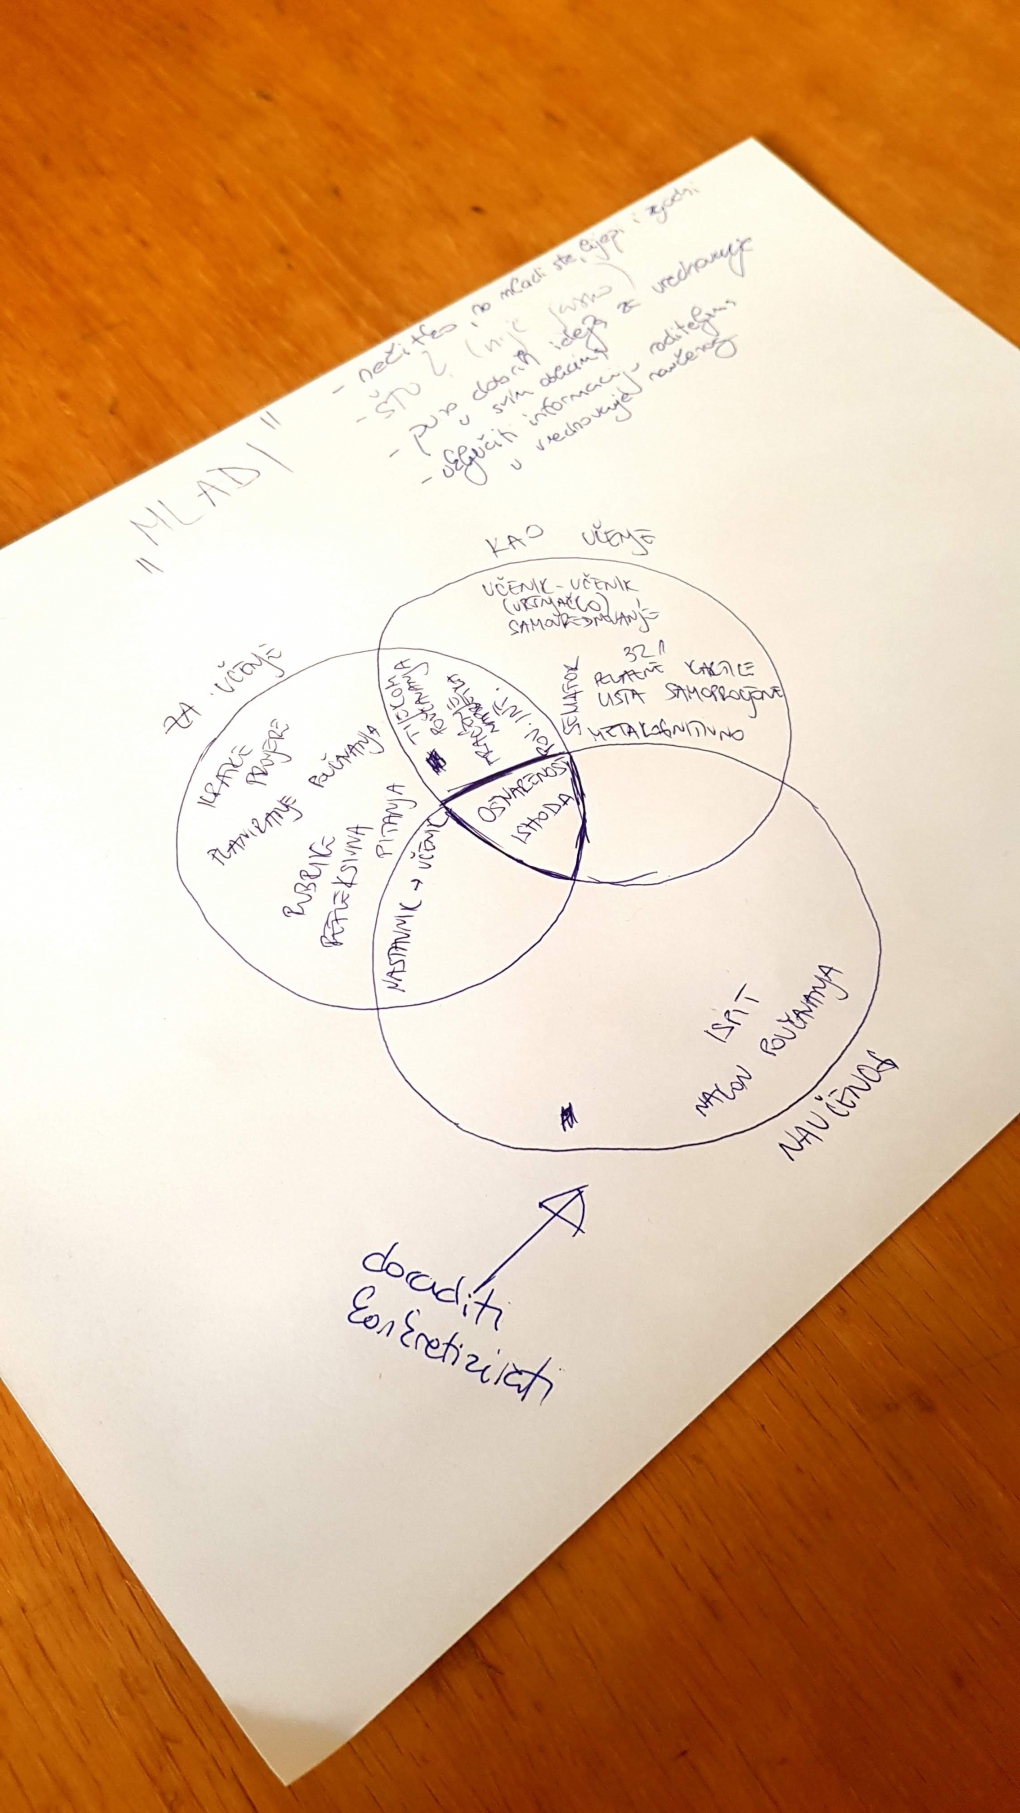 "MLADI"
- nečitko, no mladi ste, lijepi i zgodni
- ŠTO? (nije jasno)
- puno dobrih ideja za vrednovanje
u svim oblicima
- uključiti informaciju roditeljima
u vrednovanje naučenog
KAO UČENJE
UČENIK - UČENIK
(VRŠNJAČKO)
SAMOVREDNOVANJE
321
SEMAFOR
IZLAZNE KARTICE
LISTA SAMOPROCJENE
METAKOGNITIVNO
ZA UČENJE
KRATKE
PROVJERE
PLANIRANJE POUČAVANJA
RUBRIKE
REFLEKSIVNA PITANJA
TIJEKOM
POUČAVANJA
PRAĆENJE
NAPRETKA
POV. INF.
OSTVARENOST
ISHODA
NASTAVNIK → UČENIK
ISPIT
NAKON POUČAVANJA
NAUČENOG
doraditi
konkretizirati